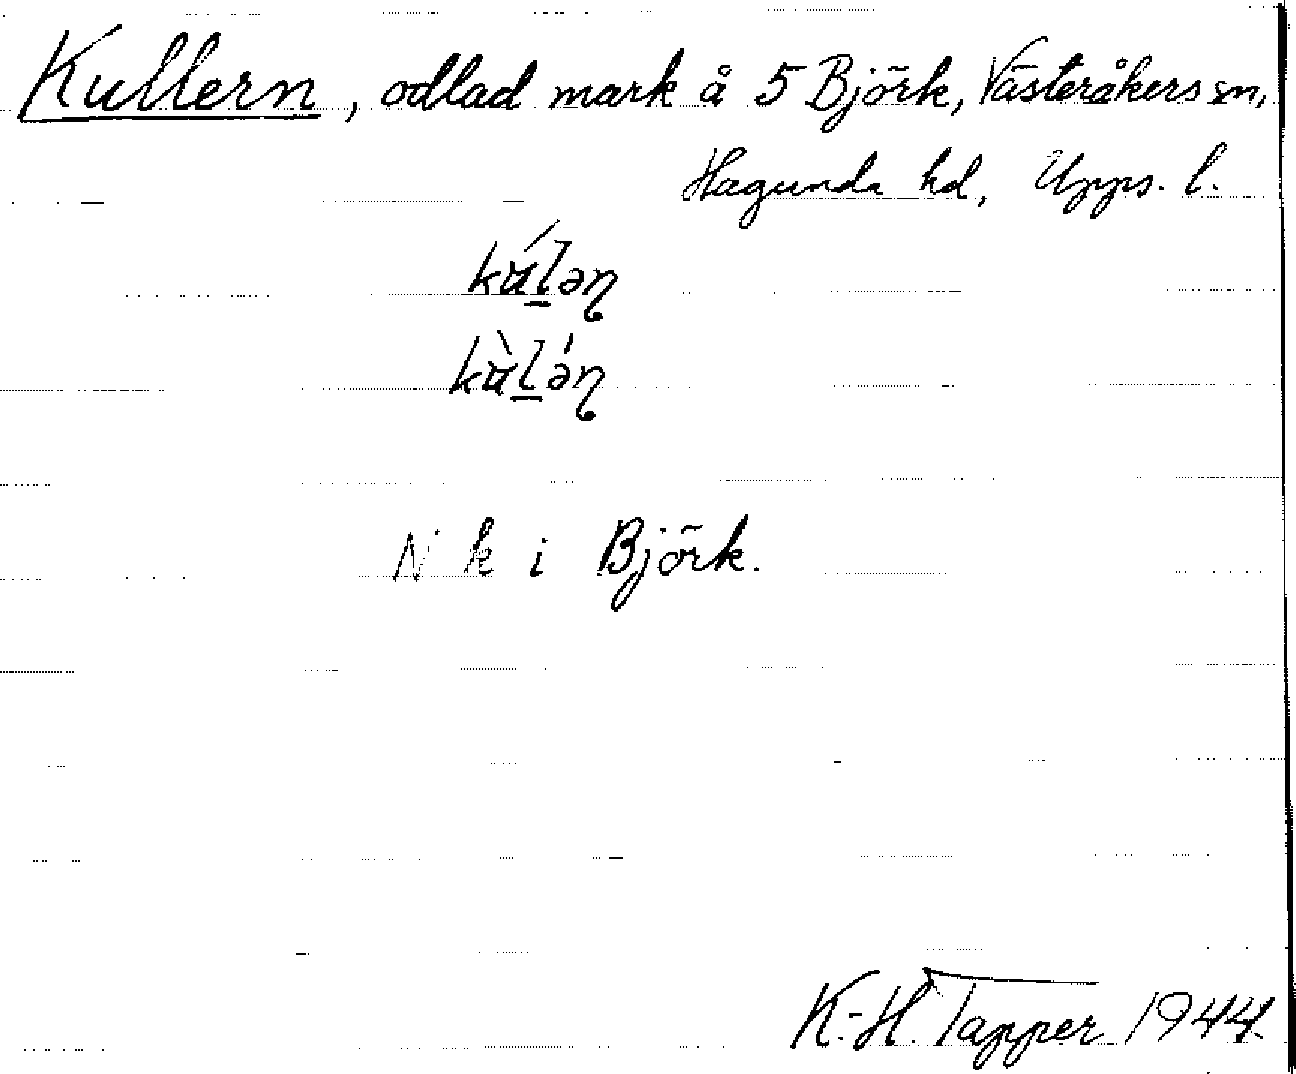 Kullern, odlad mark å 5 Björk, Västeråkers sn,
Hagunda hd, Upps. l.
kúlən
kùlə́n
N k i Björk.
K.-H. Tapper 1944.